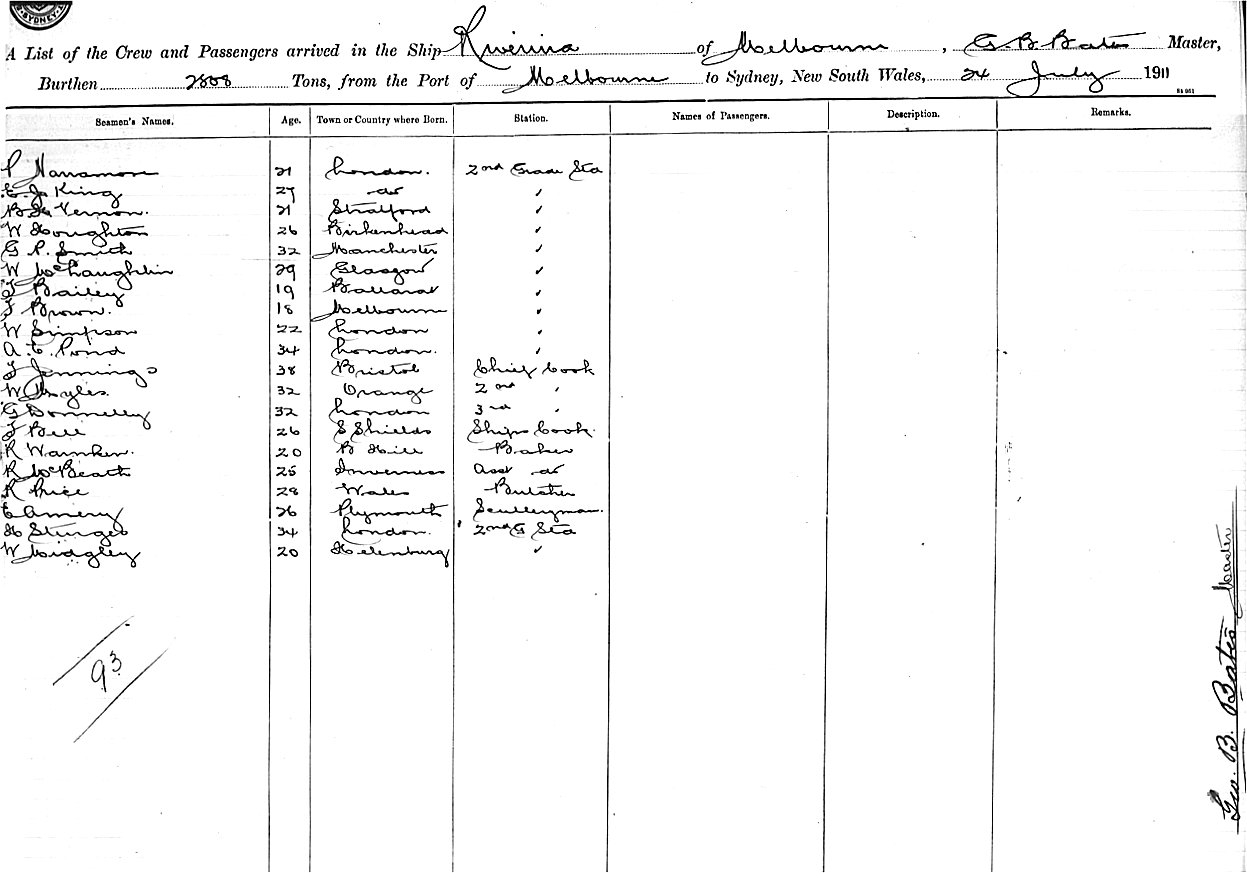 SYDNEY
A List of the Crew and Passengers arrived in the Ship Riverina of Melbourne, G. B. Bates Master,
Burthen 2808 Tons, from the Port of Melbourne to Sydney, New South Wales, 24 July 1911
Seamen's Names. Age. Town or Country where Born. Station. Names of Passengers. Description. Remarks.
P 21 London. 2nd Grade Sta
E. J. King 27 do "
Vernon. 21 Stratford "
W Houghton 26 Birkenhead "
G P. Smith 32 Manchester "
W McLaughlin 29 Glasgow "
T Bailey 19 Ballarat "
T Brown. 18 Melbourne "
W Simpson 22 London "
A. E. Pond 34 London. "
T Jennings 38 Bristol Chief Cook
W Byles. 32 Orange 2nd "
G Donnelly 32 London 3rd "
T Bell 26 S Shields Ships Cook.
R Warnken. 20 B Hill Baker
R McBeath 25 Inverness Asst do
R Price 28 Wales Butcher
E Amery 26 Plymouth Sculleryman.
H Sturges 34 London. 2nd G Sta
W Midgley 20 Helenburg "
93
Geo. B. Bates Master